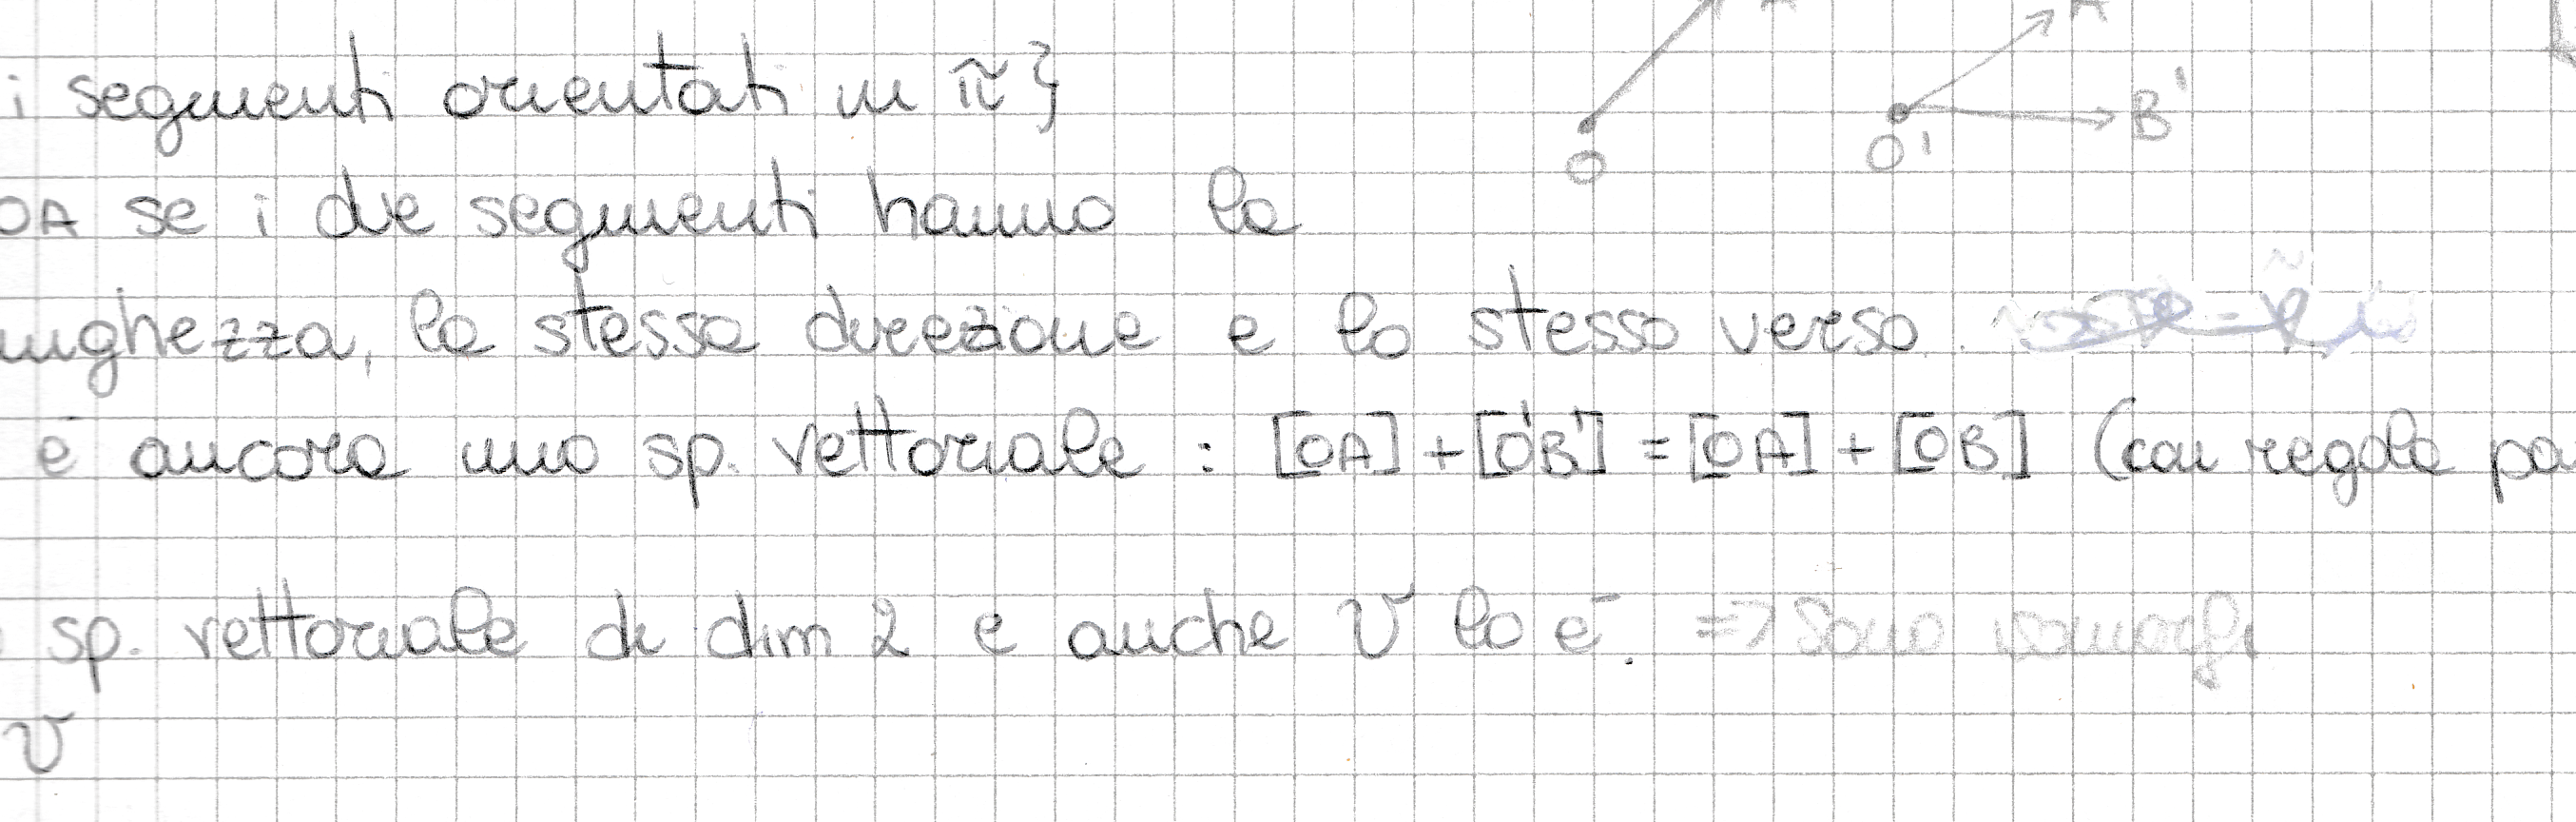 i segmenti orientati in π}
O
O'
B'
OA se i due segmenti hanno la
lunghezza, la stessa direzione e lo stesso verso.
è ancora uno sp. vettoriale : [OA] + [O'B'] = [OA] + [OB] (con regola pa
sp. vettoriale di dim 2 e anche V lo è. => Sono isomorfi
V